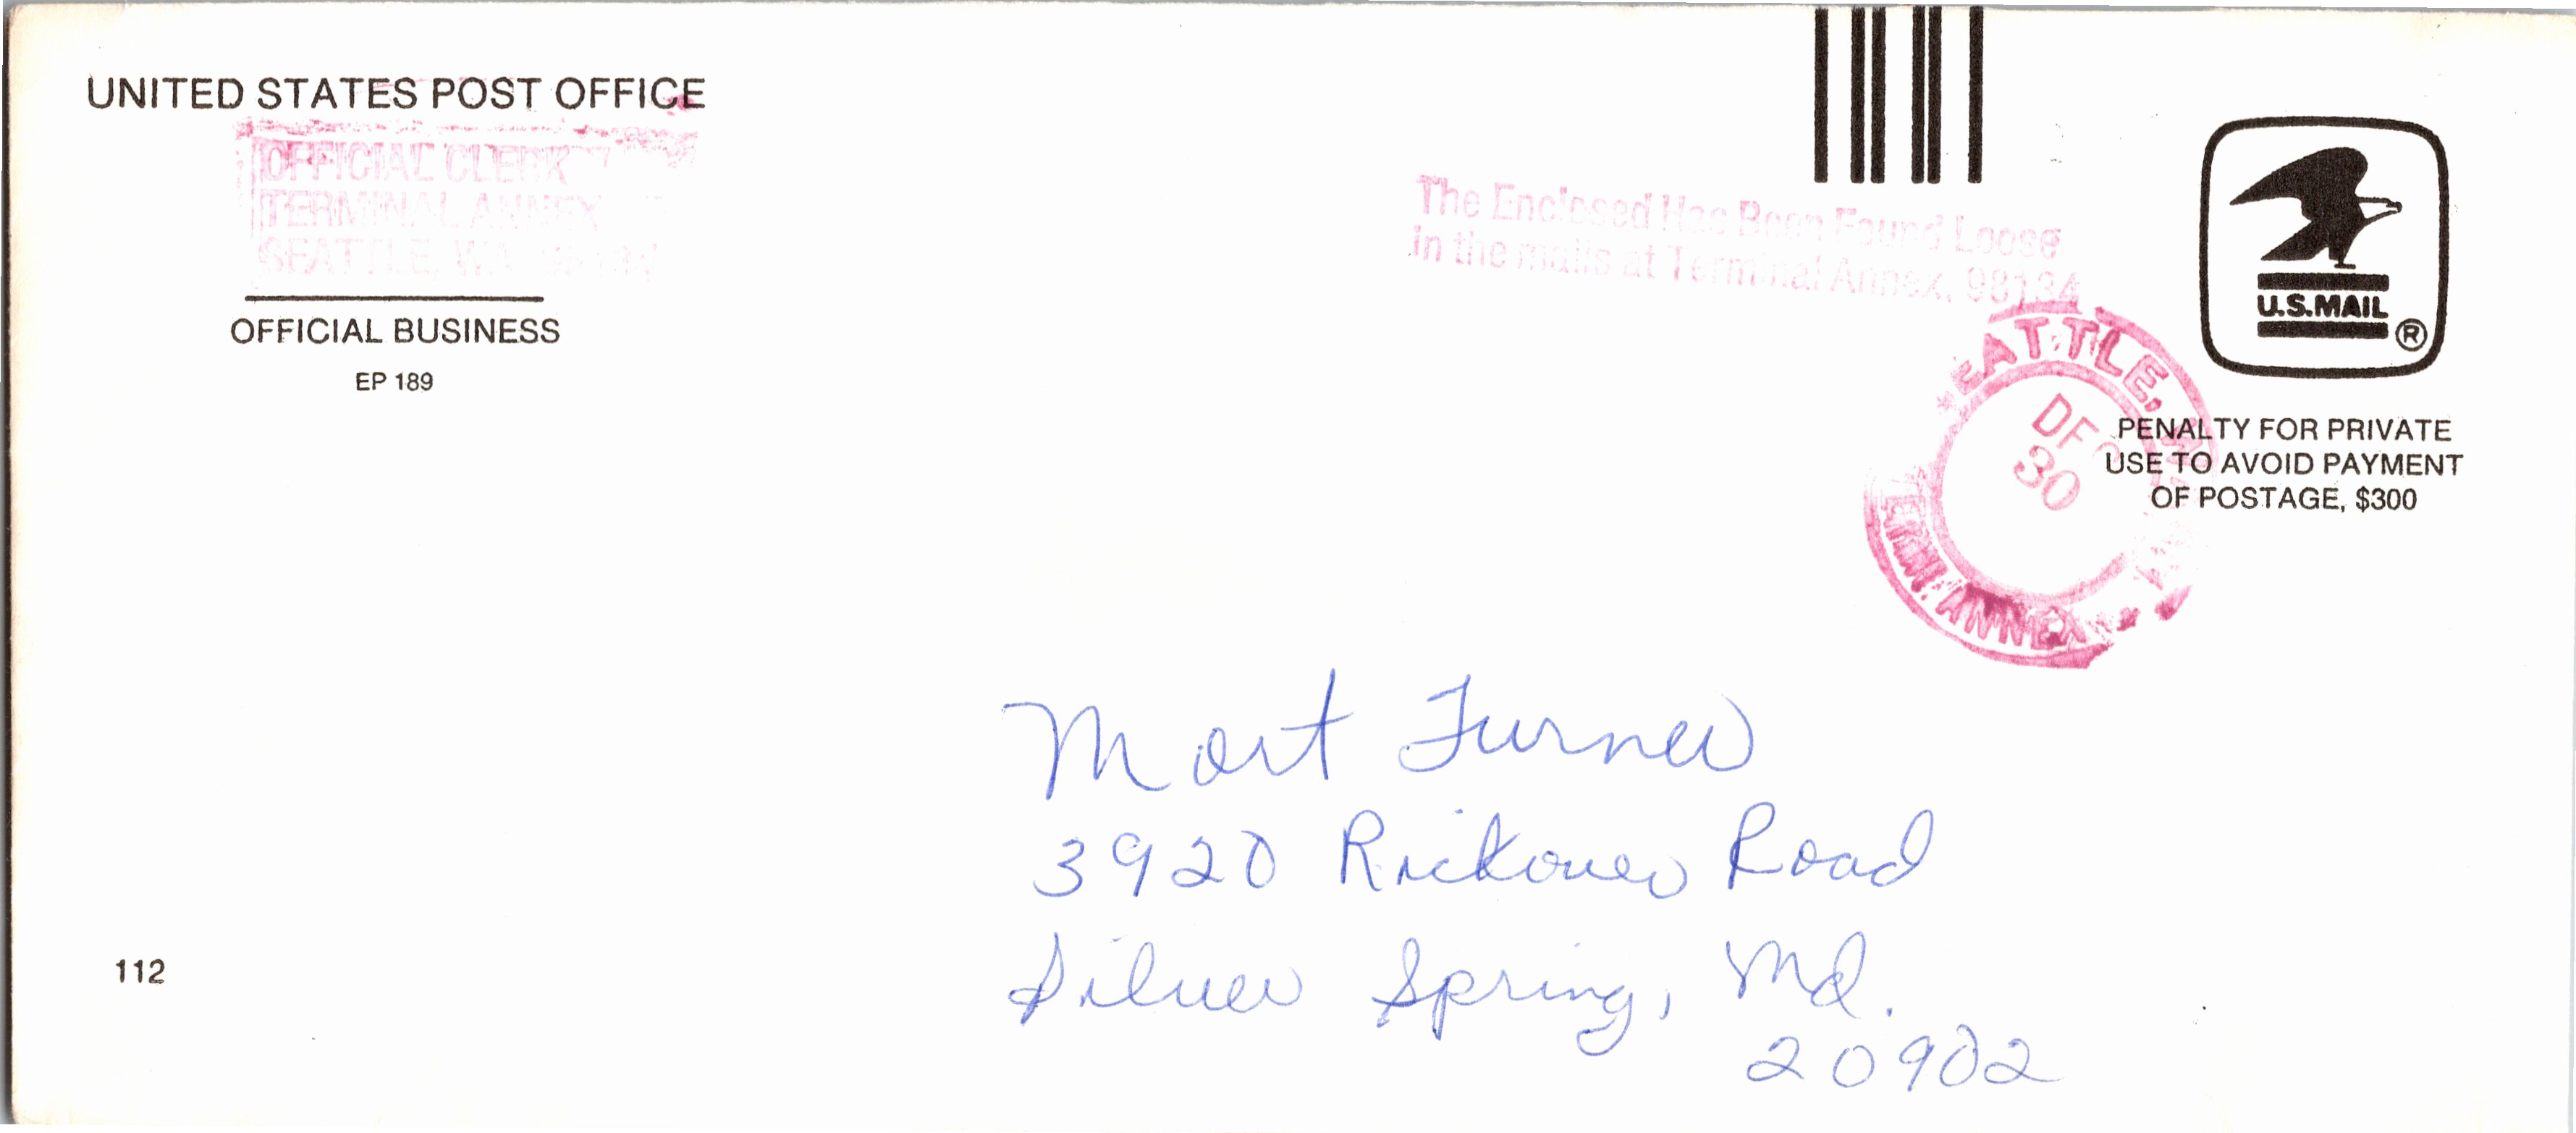 UNITED STATES POST OFFICE
OFFICIAL CLERK
TERMINAL ANNEX
SEATTLE, WA
OFFICIAL BUSINESS
EP 189
The Enclosed Has Been Found Loose
in the mails at Terminal Annex, 98134
U.S.MAIL
®
SEATTLE,
DEC
30
TERM. ANNEX
PENALTY FOR PRIVATE
USE TO AVOID PAYMENT
OF POSTAGE, $300
Mort Turner
3920 Rickover Road
Silver Spring, Md.
20902
112